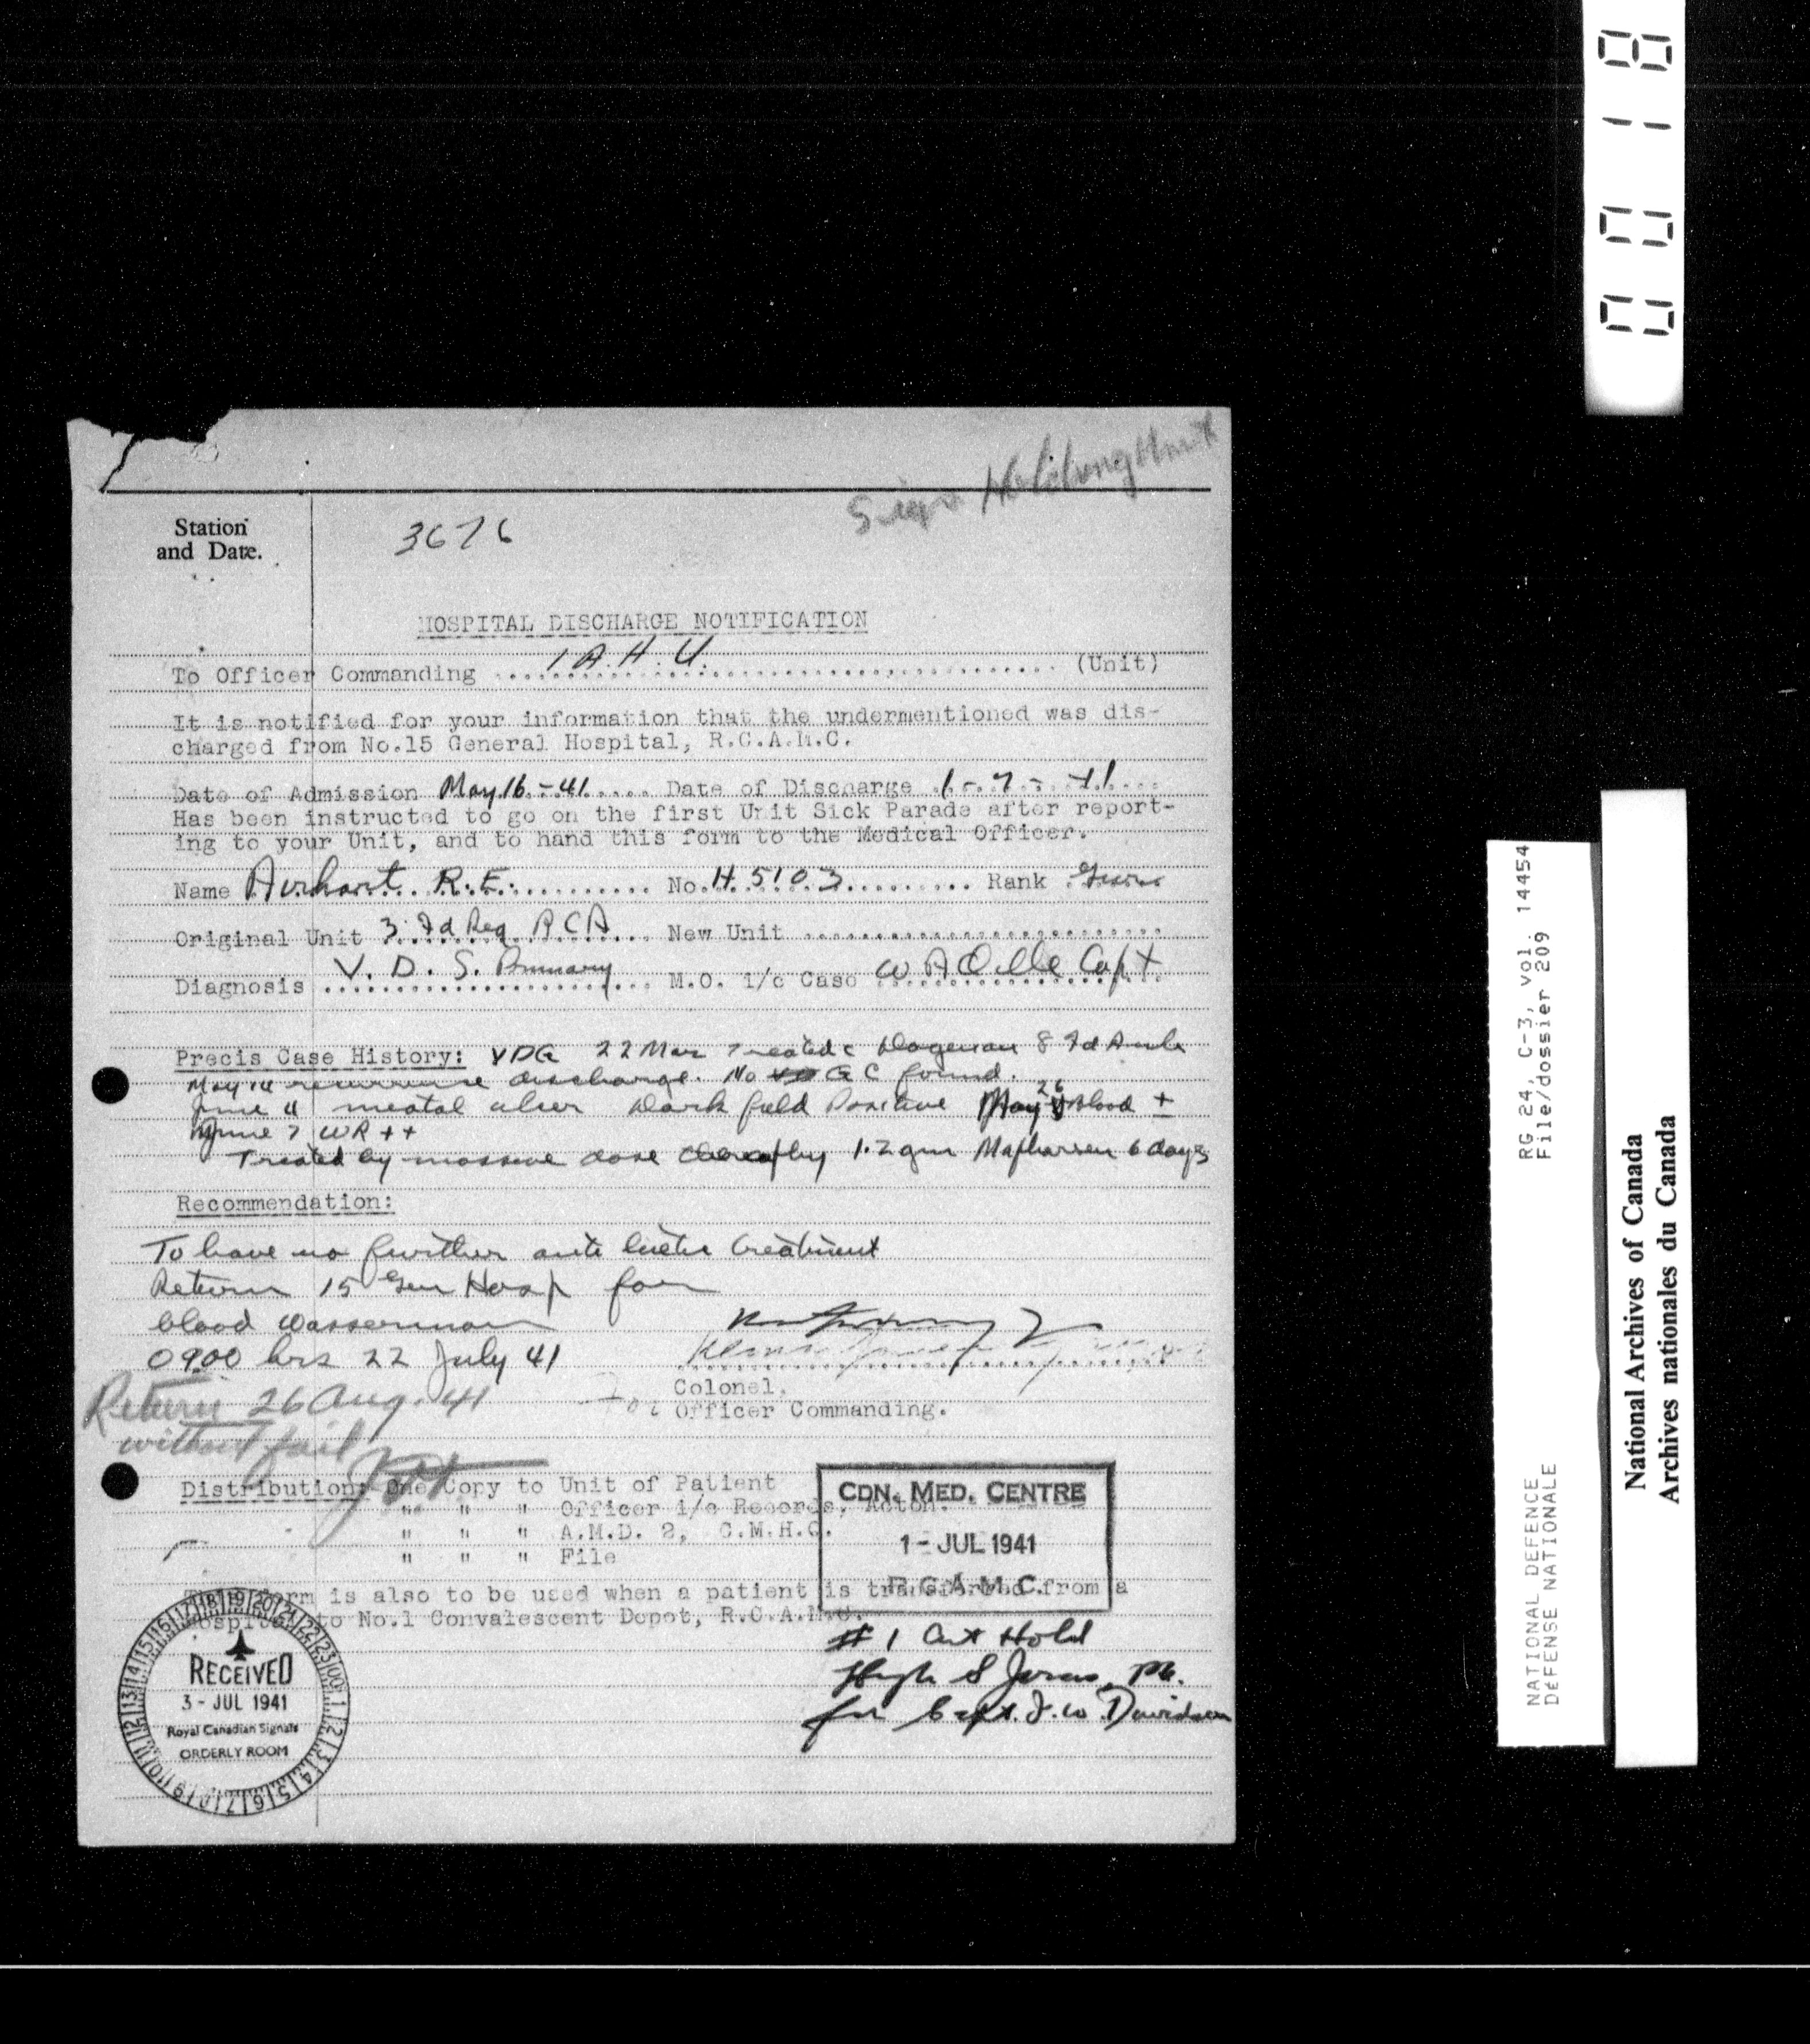 0018
Holding Unit
Station
and Date.
3676
HOSPITAL DISCHARGE NOTIFICATION
To Officer Commanding 1 A.H.U. (Unit)
It is notified for your information that the undermentioned was dis-
charged from No.15 General Hospital, R.C.A.M.C.
Date of Admission May.16.-41..... Date of Discharge 1-7-41
Has been instructed to go on the first Unit Sick Parade after report-
ing to your Unit, and to hand this form to the Medical Officer.
Name R.E. No. H.5103 Rank Gnr
Original Unit 3 Fd Reg RCA New Unit
Diagnosis V.D.S. Primary M.O. i/c Case W A Capt
Precis Case History: VDG 22 Mar Treated c Dagenan 8 Fd Amb
May 14 recurrence discharge. No GC found.
June 4 meatal ulcer Dark field Positive May 26 Blood ±
June 7 WR ++
Treated by massive dose therapy 1.2 gm Mapharsen 6 days
Recommendation:
To have no further anti luetic treatment
Return 15 Gen Hosp for
blood Wasserman
0900 hrs 22 July 41
Return 26 Aug. 41
without fail
Colonel,
Officer Commanding.
Distribution: One Copy to Unit of Patient
" " " Officer i/c Records, Acton.
" " " A.M.D. 2, C.M.H.Q.
" " " File
CDN. MED. CENTRE
1 - JUL 1941
R.C.A.M.C.
This form is also to be used when a patient is transferred from a
Hospital to No.1 Convalescent Depot, R.C.A.M.C.
# 1 Art Hold
Hugh S
for Capt. J. W. Davidson
RECEIVED
3 - JUL 1941
Royal Canadian Signals
ORDERLY ROOM
RG 24, C-3, vol. 14454
File/dossier 209
NATIONAL DEFENCE
DÉFENSE NATIONALE
National Archives of Canada
Archives nationales du Canada